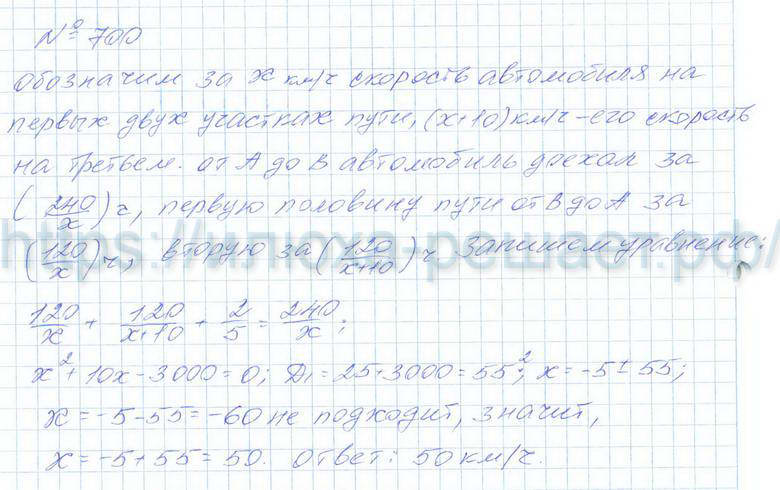 № 700
обозначим за x км/ч скорость автомобиля на
первых двух участках пути, (x+10) км/ч - его скорость
на третьем. от A до B автомобиль доехал за
(240/x) ч, первую половину пути от B до A за
(120/x) ч, вторую за (120/x+10) ч. Запишем уравнение:
https://илюха-решает.рф/
120/x + 120/x+10 + 2/5 = 240/x;
x² + 10x - 3000 = 0; D₁ = 25+3000 = 55²; x = -5 ± 55;
x = -5 - 55 = -60 не подходит, значит,
x = -5 + 55 = 50. Ответ: 50 км/ч.